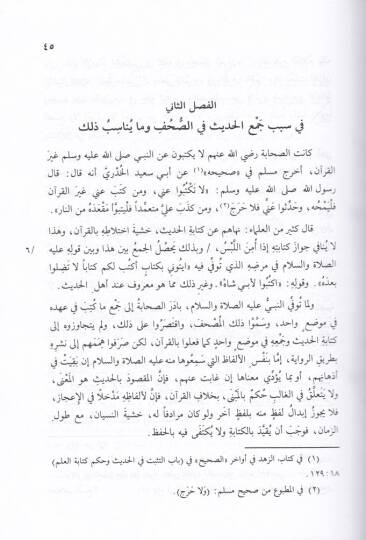 ٤٥
الفصل الثاني
في سبب جَمْع الحديث في الصُّحُفِ وما يُناسِبُ ذلك
كانت الصحابة رضي الله عنهم لا يكتبون عن النبي صلى الله عليه وسلم غيرَ
القرآن، أخرج مسلم في «صحيحه»(١) عن أبي سعيد الخُدْريِّ أنه قال: قال
رسول الله صلى الله عليه وسلم: «لا تَكْتُبُوا عني، ومن كتبَ عني غيرَ القرآن
فَلْيَمْحُه، وحَدِّثوا عَنِّي فلا حَرَج(٢)، ومن كَذَبَ عليَّ متعمِّداً فَلْيتبوَّأْ مَقْعَدَه من النار».
قال كثير من العلماء: نهاهم عن كتابةِ الحديث، خشيةَ اختلاطِه بالقرآن، وهذا
لا يُنافي جوازَ كتابتِه إذا أُمِنَ اللَّبْسُ، / وبذلك يَحصُلُ الجمعُ بين هذا وبين قولِه عليه
/٦
الصلاة والسلام في مرضِهِ الذي تُوفِّي فيه «ايتوني بكتابٍ أكتُب لكم كتاباً لا تَضِلوا
بعدَهُ». وقولِه: «اكتُبُوا لأبي شاهْ». وغيرِ ذلك مما هو معروف عند أهل الحديث.
ولما تُوفِّيَ النبيُّ عليه الصلاة والسلام، بادَرَ الصحابةُ إلى جَمْع ما كُتِبَ في عهده
في موضعٍ واحد، وسَمَّوْا ذلك المُصحَف، واقتَصَرُوا على ذلك، ولم يتجاوزوه إلى
كتابةِ الحديث وجَمْعِه في موضعٍ واحد كما فعلوا بالقرآن، لكن صَرَفوا هِمَمَهم إلى نشرِهِ
بطريق الرواية، إمَّا بنَفْس الألفاظ التي سَمِعُوها منه عليه الصلاة والسلام إن بَقِيَتْ في
أذهانِهم، أو بما يُؤدِّي معناها إن غابت عنهم، فإنَّ المقصودَ بالحديث هو المَعْنَى،
ولا يَتعلَّقُ في الغالب حُكْمٌ بالمَبْنَى، بخلافِ القرآن، فإنَّ لألفاظِه مَدْخَلاً في الإعجاز،
فلا يجوزُ إبدالُ لفظٍ منه بلفظٍ آخر ولو كان مرادفاً له، خشيةَ النسيان، مع طولِ
الزمان، فوجَبَ أن يُقيَّد بالكتابةِ ولا يُكتفَى فيه بالحفظ.
(١) في كتاب الزهد في أواخر «الصحيح» في (باب التثبت في الحديث وحكم كتابة العلم)
١٢٩:١٨.
(٢) في المطبوع من صحيح مسلم: (وَلا حَرَج).